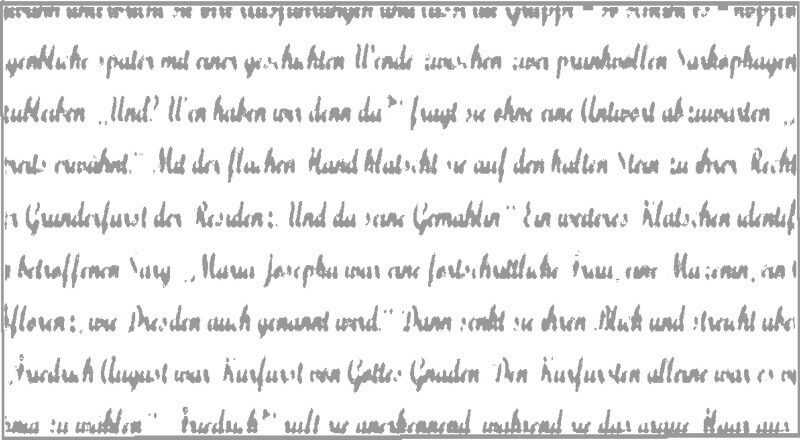 sie ihre Ausführungen und lässt die Gruppe - so scheint es -
später mit einer geschickten Wende zwischen zwei prunkvollen Sarkophagen
„Und? Wen haben wir denn da?“ fragt sie ohne eine Antwort abzuwarten „
erwähnt.“ Mit der flachen Hand klatscht sie auf den kalten Stein zu ihrer
Gründerfürst der Residenz. Und da seine Gemahlin“ Ein weiteres Klatschen
betroffenen Sarg. „Maria Josepha war eine fortschrittliche Frau, eine Mäzenin, ein
wie Dresden auch genannt wird.“ Dann senkt sie ihren Blick und streicht
„Friedrich August war Kurfürst von Gottes Gnaden. Den Kurfürsten alleine war es
zu wählen“ „Friedrich?“ ruft sie anerkennend während sie das Haar aus